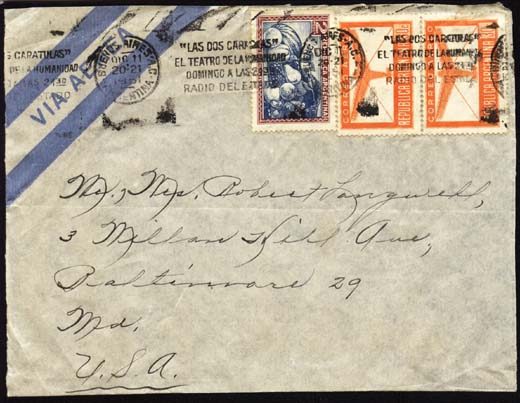 VIA AEREA
CARATULAS"
DE LA HUMANIDAD
BUENOS AIRES
DIC 11
20-21
ARGENTINA
"LAS DOS CARATULAS"
EL TEATRO DE LA HUMANIDAD
DOMINGO A LAS
RADIO DEL ESTADO
DIC 11
"LAS DOS CARATULAS"
EL TEATRO DE LA HUMANIDAD
DOMINGO A LAS
RADIO DEL
CORREOS
REPUBLICA
CORREOS
REPUBLICA ARGENTINA
Mr., Mrs. Robert Longwell,
3 Hill Ave,
Baltimore 29
Md.
U.S.A.